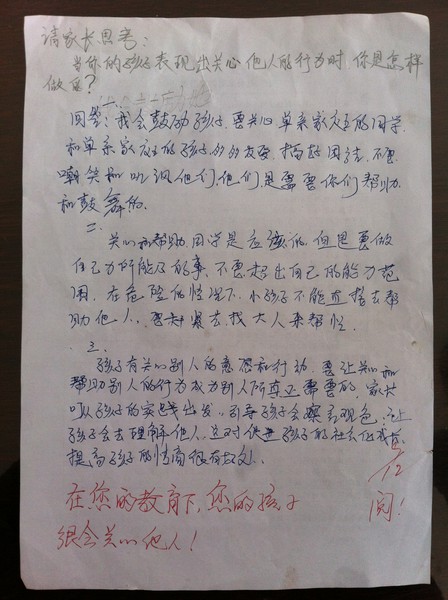 请家长思考:
当你的孩子表现出关心他人的行为时,你是怎样
做的?
一、
回答:我会鼓励孩子,要关心单亲家庭的同学
和单亲家庭的孩子多多友爱,搞好团结,不要
嘲笑和叽讽他们,他们是需要你们帮助
和鼓舞的。
二、
关心和帮助同学是应该的,但是要做
自己力所能及的事,不要超出自己的能力范
围,在危险的情况下,小孩子不能逞揩去帮
助他人,要赶紧去找大人来帮忙。
三、
孩子有关心别人的意愿和行动,要让关心和
帮助别人的行为成为别人所真正需要的,家长
可从孩子的实践出发,引导孩子会察言观色,让
孩子会去理解他人,这对促进孩子的社会化成长
提高孩子的情商很有好处。
在您的教育下,您的孩子
很会关心他人!
阅!